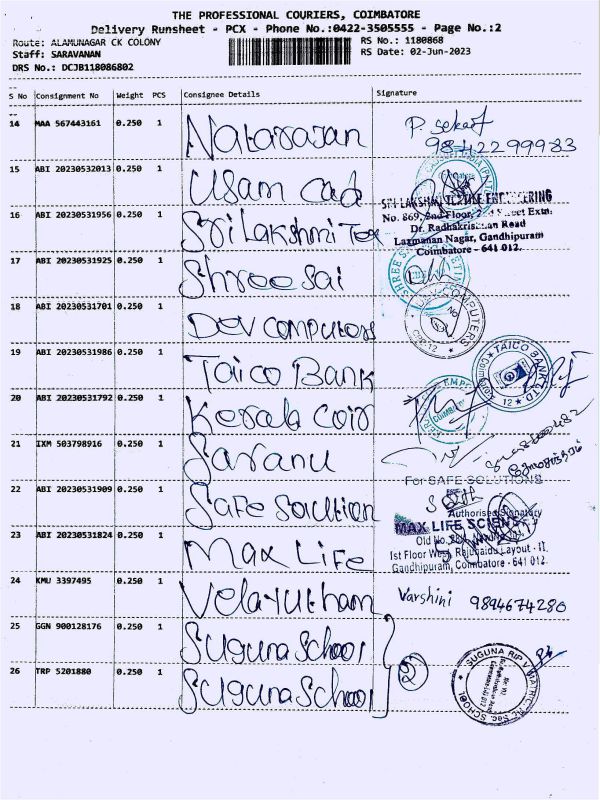 THE PROFESSIONAL COURIERS, COIMBATORE
Delivery Runsheet - PCX - Phone No.:0422-3505555 - Page No.:2
Route: ALAMUNAGAR CK COLONY
Staff: SARAVANAN
DRS No.: DCJB118086802
RS No.: 1180868
RS Date: 02-Jun-2023
S No Consignment No Weight PCS Consignee Details Signature
14 MAA 567443161 0.250 1 Natarajan P. Sekar
9842299983
15 ABI 20230532013 0.250 1 Usam Cad
16 ABI 20230531956 0.250 1 Sri Lakshmi Tex
SRI LAKSHMI ENGINEERING
No. 869, 2nd Floor, 2nd Street Extn.
Dr. Radhakrishnan Road
Laxmanan Nagar, Gandhipuram
Coimbatore - 641 012.
17 ABI 20230531925 0.250 1 Shree Sai
SHREE
18 ABI 20230531701 0.250 1 Dev Computors
COMPUTERS
19 ABI 20230531986 0.250 1 Taico Bank
TAICO BANK LTD
12
20 ABI 20230531792 0.250 1 Kerala Coir
COIMBATORE
21 IXM 503798916 0.250 1 Saranu
22 ABI 20230531909 0.250 1 Safe Soultion
For SAFE SOLUTIONS
Authorised Signatory
23 ABI 20230531824 0.250 1 Max Life
MAX LIFE SCIENCE
Old No.
1st Floor West, Rajunaidu Layout - II,
Gandhipuram, Coimbatore - 641 012.
24 KMU 3397495 0.250 1 Velayutham Varshini 9894674280
25 GGN 900128176 0.250 1 Suguna School
26 TRP 5201880 0.250 1 Suguna School
2
SUGUNA RIP V MATRIC Hr. Sec. SCHOOL